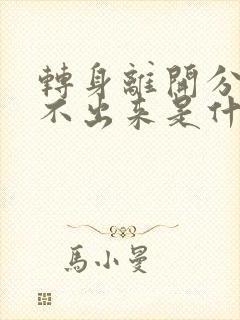 轉身離開分
不出来是什
馬小曼